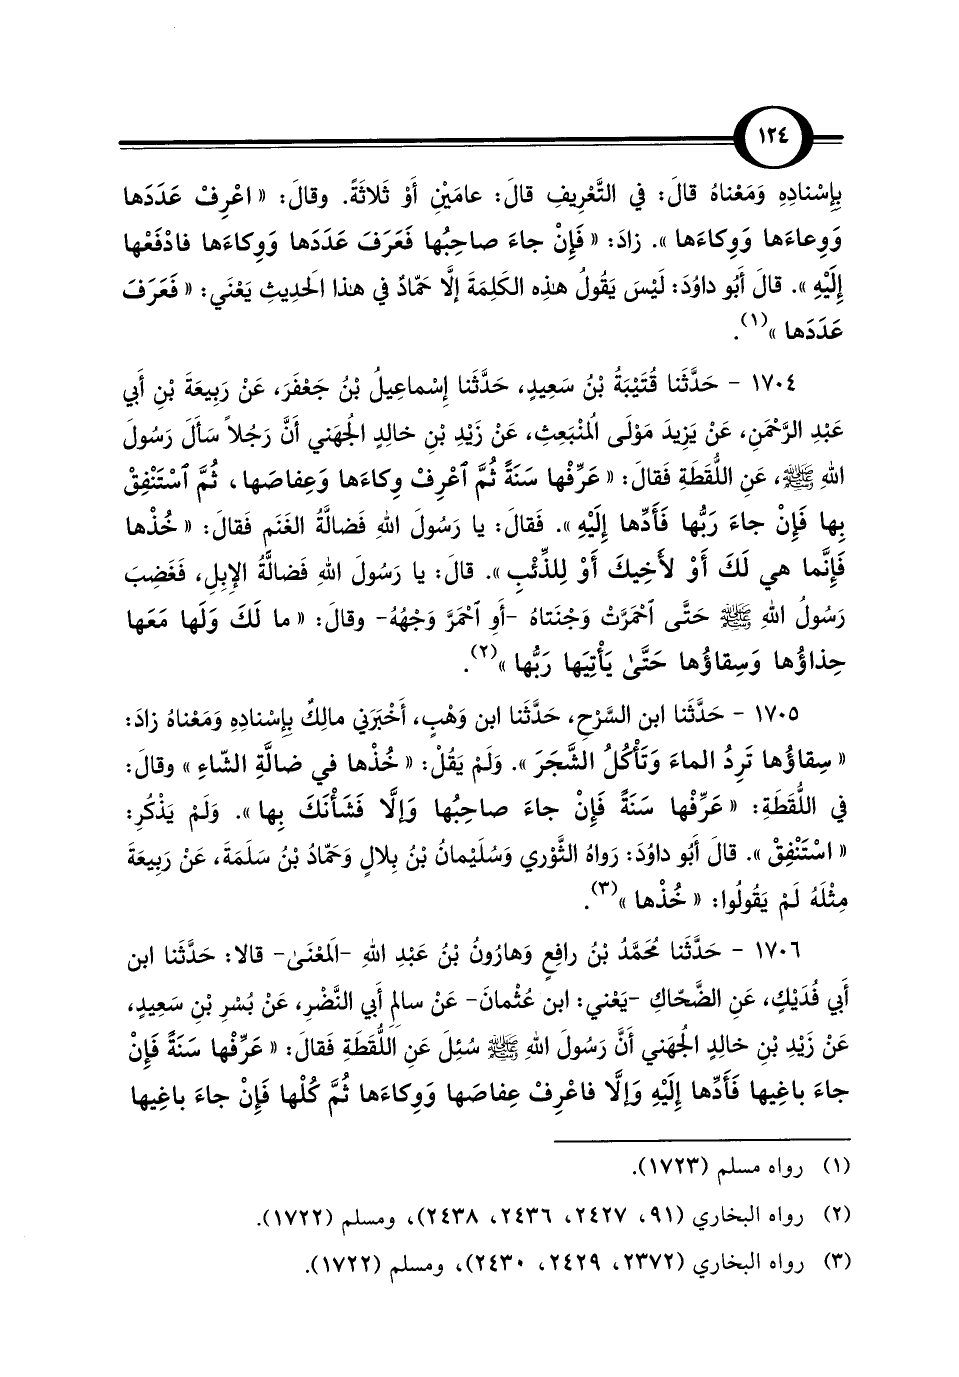 ١٢٤
بِإِسْنادِهِ وَمَعْناهُ قالَ: في التَّعْرِيفِ قالَ: عامَيْنِ أَوْ ثَلاثَةً. وقالَ: « اعْرِفْ عَدَدَها
وَوِعاءَها وَوِكاءَها ». زادَ: « فَإِنْ جاءَ صاحِبُها فَعَرَفَ عَدَدَها وَوِكاءَها فادْفَعْها
إِلَيْهِ ». قالَ أَبُو داوُدَ: لَيْسَ يَقُولُ هذِه الكَلِمَةَ إلَّا حَمّادٌ في هذا الَحدِيثِ يَعْنَي: « فَعَرَفَ
عَدَدَها »(١).
١٧٠٤ - حَدَّثَنا قُتَيْبَةُ بْنُ سَعِيدٍ، حَدَّثَنا إِسْماعِيلُ بْنُ جَعْفَرَ، عَنْ رَبِيعَةَ بْنِ أَبي
عَبْدِ الرَّحْمَنِ، عَنْ يَزِيدَ مَوْلَى المُنْبَعِثِ، عَنْ زَيْدِ بْنِ خالِدٍ الجُهَني أَنَّ رَجُلاً سَأَلَ رَسُولَ
اللهِ ﷺ، عَنِ اللُّقَطَةِ فَقالَ: « عَرِّفْها سَنَةً ثُمَّ ٱعْرِفْ وِكاءَها وَعِفاصَها، ثُمَّ ٱسْتَنْفِقْ
بِها فَإِنْ جاءَ رَبُّها فَأَدِّها إِلَيْهِ ». فَقالَ: يا رَسُولَ اللهِ فَضالَّةُ الغَنَمِ فَقالَ: « خُذْها
فَإِنَّما هي لَكَ أَوْ لأَخِيكَ أَوْ لِلذِّئْبِ ». قالَ: يا رَسُولَ اللهِ فَضالَّةُ الإِبِلِ، فَغَضِبَ
رَسُولُ اللهِ ﷺ حَتَّى ٱحْمَرَّتْ وَجْنَتاهُ -أَوِ ٱحْمَرَّ وَجْهُهُ- وقالَ: « ما لَكَ وَلَها مَعَها
حِذاؤُها وَسِقاؤُها حَتَّىٰ يَأْتِيَها رَبُّها »(٢).
١٧٠٥ - حَدَّثَنا ابن السَّرْحِ، حَدَّثَنا ابن وَهْبٍ، أَخْبَرَني مالِكٌ بِإِسْنادِهِ وَمَعْناهُ زادَ:
« سِقاؤُها تَرِدُ الماءَ وَتَأْكُلُ الشَّجَرَ ». وَلَمْ يَقُلْ: « خُذْها في ضالَّةِ الشّاءِ » وقالَ:
في اللُّقَطَةِ: « عَرِّفْها سَنَةً فَإِنْ جاءَ صاحِبُها وَإِلَّا فَشَأْنَكَ بِها ». وَلَمْ يَذْكُرِ:
« اسْتَنْفِقْ ». قالَ أَبُو داوُدَ: رَواهُ الثَّوْري وَسُلَيْمانُ بْنُ بِلالٍ وَحَمّادُ بْنُ سَلَمَةَ، عَنْ رَبِيعَةَ
مِثْلَهُ لَمْ يَقُولُوا: « خُذْها »(٣).
١٧٠٦ - حَدَّثَنا مُحَمَّدُ بْنُ رافِعٍ وَهارُونُ بْنُ عَبْدِ اللهِ -المَعْنَىٰ- قالا: حَدَّثَنا ابن
أَبي فُدَيْكٍ، عَنِ الضَّحّاكِ -يَعْني: ابن عُثْمانَ- عَنْ سالِمٍ أَبي النَّضْرِ، عَنْ بُسْرِ بْنِ سَعِيدٍ،
عَنْ زَيْدِ بْنِ خالِدٍ الجُهَني أَنَّ رَسُولَ اللهِ ﷺ سُئِلَ عَنِ اللُّقَطَةِ فَقالَ: « عَرِّفْها سَنَةً فَإِنْ
جاءَ باغِيها فَأَدِّها إِلَيْهِ وَإِلَّا فاعْرِفْ عِفاصَها وَوِكاءَها ثُمَّ كُلْها فَإِنْ جاءَ باغِيها
(١) رواه مسلم (١٧٢٣).
(٢) رواه البخاري (٩١، ٢٤٢٧، ٢٤٣٦، ٢٤٣٨)، ومسلم (١٧٢٢).
(٣) رواه البخاري (٢٣٧٢، ٢٤٢٩، ٢٤٣٠)، ومسلم (١٧٢٢).